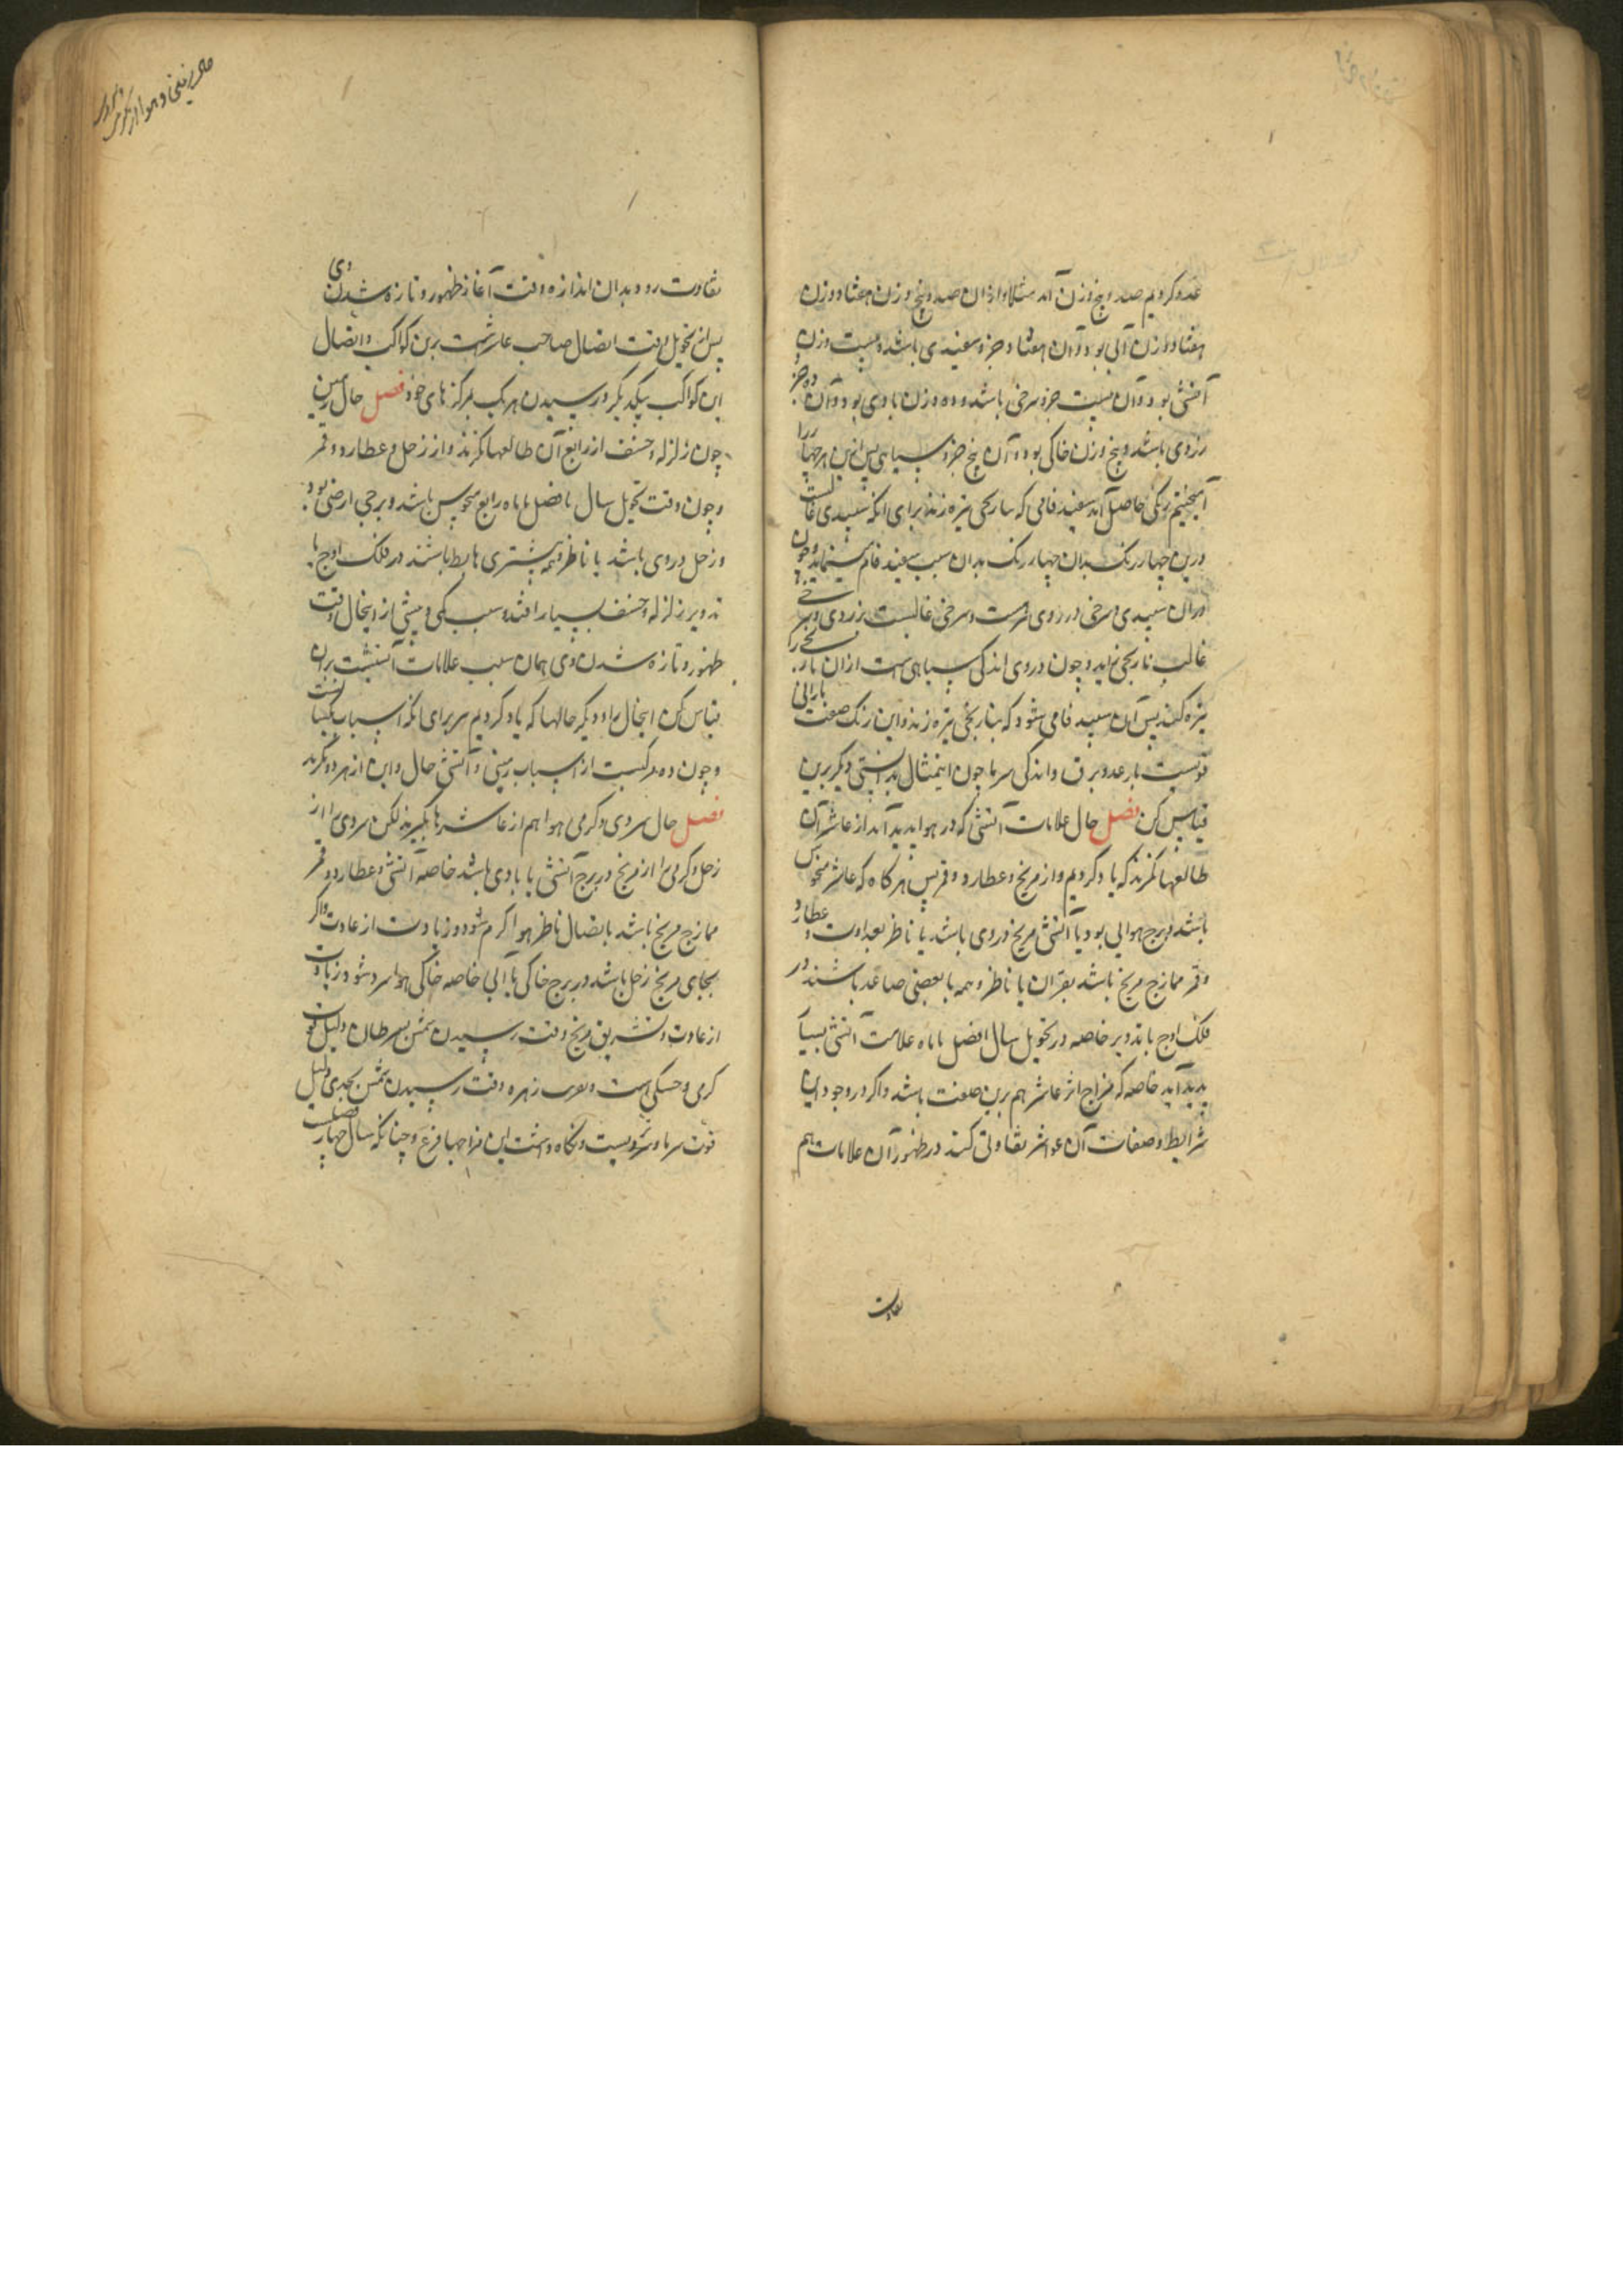 عدد کردیم صد و پنج وزن آمد مثلا و ازان صد و پنج وزن هفتاد وزن
هفتاد وزن آبی بود و آن هفتاد جزو سفیدی باشد و بیست وزن
آتشی بود و آن بیست جزو سرخی باشد و ده وزن بادی بود و آن ده جزو
زردی باشد و پنج وزن خاکی بود و آن پنج جزو سیاهی پس ازین هر چهار را
آمیختیم رنگی حاصل آمد سفید فامی که بنارنجی تیره زند برای آنکه سفیدی غالبست
درین چهار رنگ بدان چهار رنگ بدان سبب سفید فام مینماید و چون
دران سپیدی سرخی و زردی هست و سرخی غالبست بر زردی و سرخی
غالب نارنجی نماید و چون در وی اندکی سیاهی هست ازان نارنجی را
تیره کند پس آن سپید فامی شود که بنارنجی تیره زند و این رنگ صفت بارانی
قویست با رعد و برق و اندکی سرما چون این مثال بدانستی دیگر برین
قیاس کن فصل حال علامات آتشی که در هوا پدید آید از عاشر آن
طالعها نگرند که یاد کردیم و از مریخ و عطارد و قمر پس هرگاه که عاشر منحوس
باشد و برج هوایی بود یا آتشی مریخ در وی باشد یا ناظر بعداوت و عطارد
و قمر ممازج مریخ باشد بقران یا ناظر و همه یا بعضی صاعد باشند در
فلک اوج یا تدویر خاصه در تحویل سال یا فصل یا ماه علامت آتشی بسیار
پدید آید خاصه که مزاج اثر عاشر هم برین صفت باشد و اگر در وجود این
شرایط و صفات آن عواشر تفاوتی کند در ظهور آن علامات هم
تفاوت
تفاوت رود بدان اندازه و وقت آغاز ظهور و تازه شدن وی
پس از تحویل وقت اتصال صاحب عاشرست برین کواکب و اتصال
این کواکب بیکدیگر و رسیدن هر یک بمرکزهای خود فصل حال زمین
چون زلزله و خسف از رابع آن طالعها نگرند و از زحل و عطارد و قمر
و چون وقت تحویل سال یا فصل یا ماه رابع منحوس باشد و برجی ارضی بود
و زحل در وی باشد یا ناظر و مشتری هابط باشند در فلک اوج یا
تدویر زلزله و خسف بسیار افتد و سبب کمی و بیشی از ویحال وقت
ظهور و تازه شدن وی همان سبب علامات آتشیست بران
قیاس کن اینحال را و دیگر حالها که یاد کردیم برای آنکه اسباب یکیاست
و چون ده مرکبست از اسباب زمینی و آتشی حال و این از هر دو نگرند
فصل حال سردی و گرمی هوا هم از عاشرها بگیرند لکن سردی را از
زحل و گرمی را از مریخ در برج آتشی یا بادی باشد خاصه آتشی و عطارد و قمر
ممازج مریخ باشد باتصال ناظر هوا گرم شود و زیادت از عادت و اگر
بجای مریخ زحل باشد در برج خاکی یا آبی خاصه خاکی هوا سرد شود زیادت
از عادت و تشریق مریخ وقت رسیدن شمس بسرطان دلیل قوت
گرمی و خشکی است و تغریب زهره وقت رسیدن شمس بجدی دلیل
قوت سرما و تریست و نگاه داشت این مزاجها فرع و چنانکه سال چهار فصلست